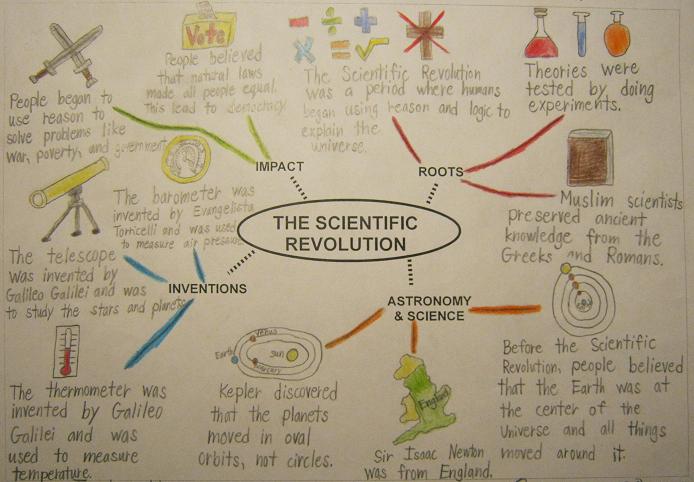 THE SCIENTIFIC
REVOLUTION
IMPACT
People began to
use reason to
solve problems like
war, poverty, and government.
Vote
People believed
that natural laws
made all people equal.
This lead to democracy.
ROOTS
The Scientific Revolution
was a period where humans
began using reason and logic to
explain the
universe.
Theories were
tested by doing
experiments.
Muslim scientists
preserved ancient
knowledge from the
Greeks and Romans.
INVENTIONS
The barometer was
invented by Evangelista
Torricelli and was used
to measure air pressure.
The telescope
was invented by
Galileo Galilei and was
to study the stars and planets.
The thermometer was
invented by Galileo
Galilei and was
used to measure
temperature.
ASTRONOMY
& SCIENCE
Venus
Earth
Sun
Mercury
Kepler discovered
that the planets
moved in oval
orbits, not circles.
England
Sir Isaac Newton
was from England.
Before the Scientific
Revolution, people believed
that the Earth was at
the center of the
Universe and all things
moved around it.